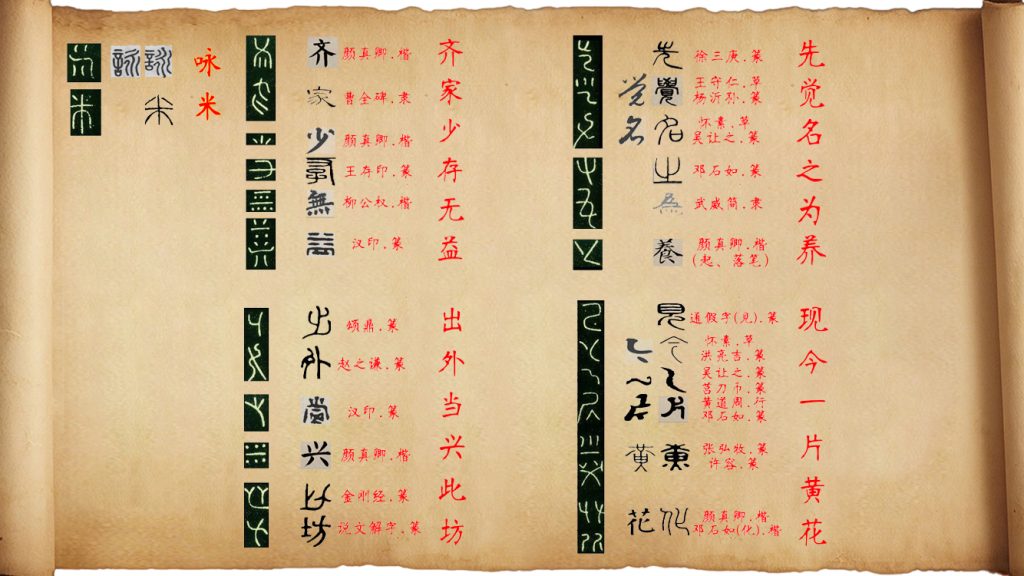 咏
米
齐 颜真卿.楷 齐
家 曹全碑.隶 家
少 颜真卿.楷 少
王存印.篆 存
無 柳公权.楷 无
益 汉印.篆 益
出 颂鼎.篆 出
外 赵之谦.篆 外
當 汉印.篆 当
兴 颜真卿.楷 兴
金刚经.篆 此
坊 说文解字.篆 坊
先 徐三庚.篆 先
覺 王守仁.草 觉
杨沂孙.篆
名 怀素.草 名
吴让之.篆
之 邓石如.篆 之
為 武威简.隶 为
養 颜真卿.楷 养
(起、落笔)
見 通假字(见).篆 现
今 怀素.草 今
洪亮吉.篆
吴让之.篆 一
莒刀币.篆
片 黄道周.行 片
邓石如.篆
黄 张弘牧.篆 黄
许容.篆
花 化 颜真卿.楷 花
邓石如(化).楷